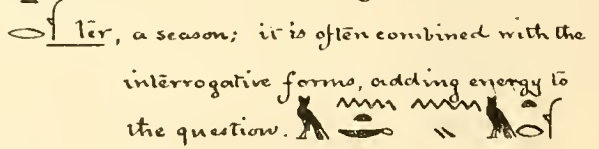 ter, a season; it is often combined with the
interrogative forms, adding energy to
the question.